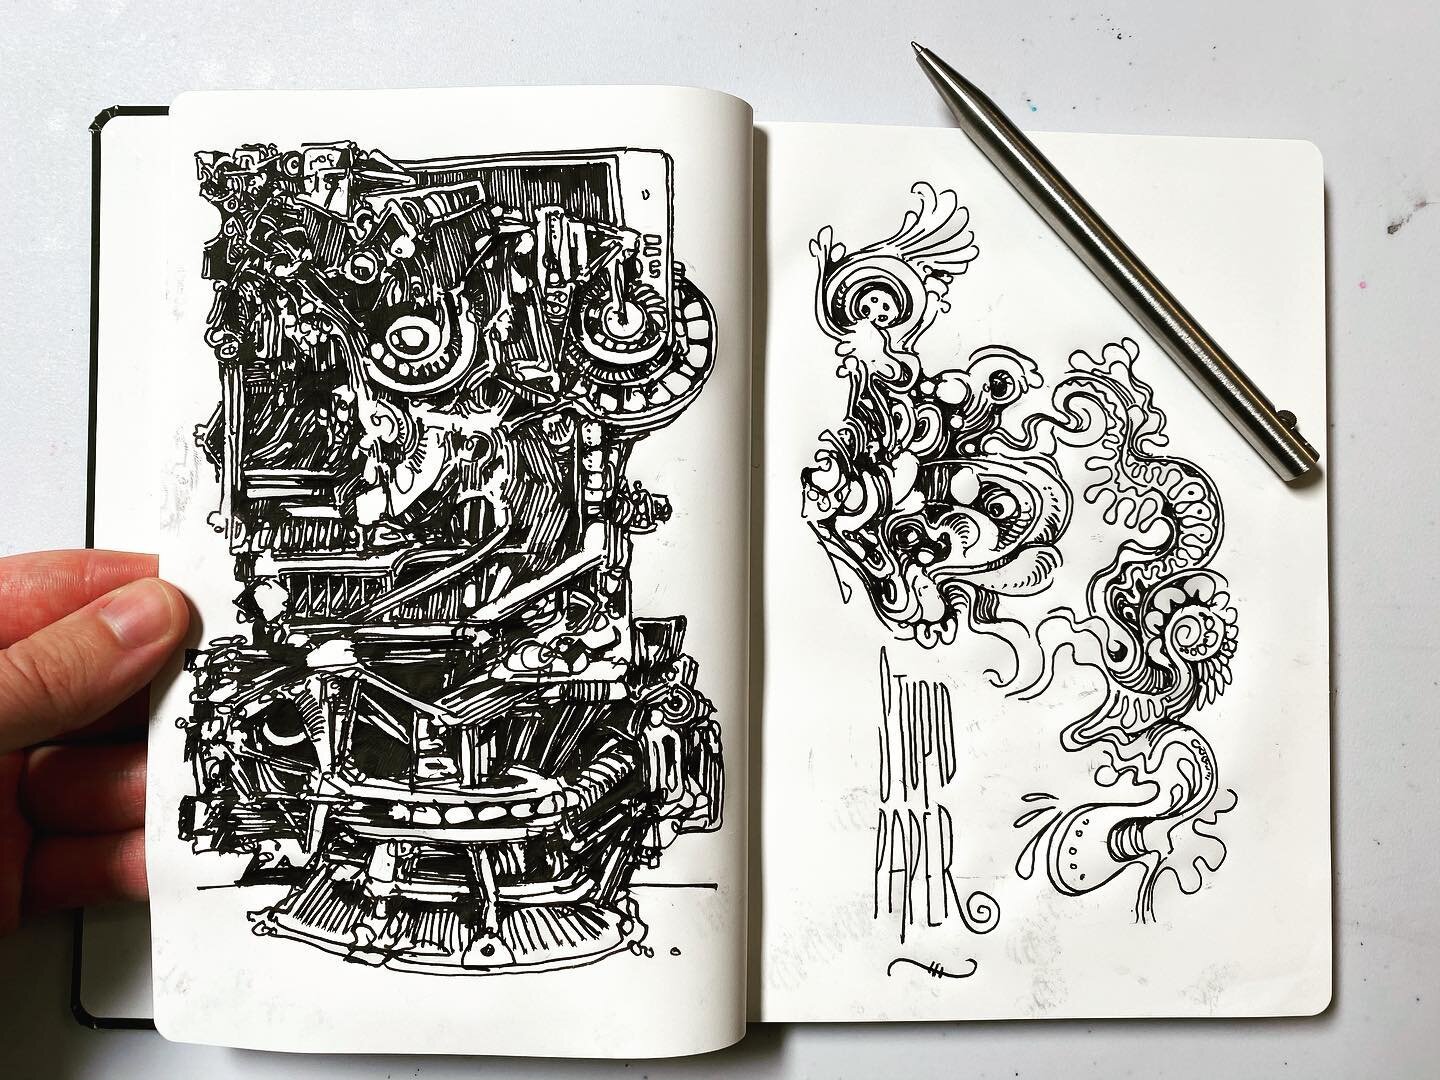 STUPID
PAPER